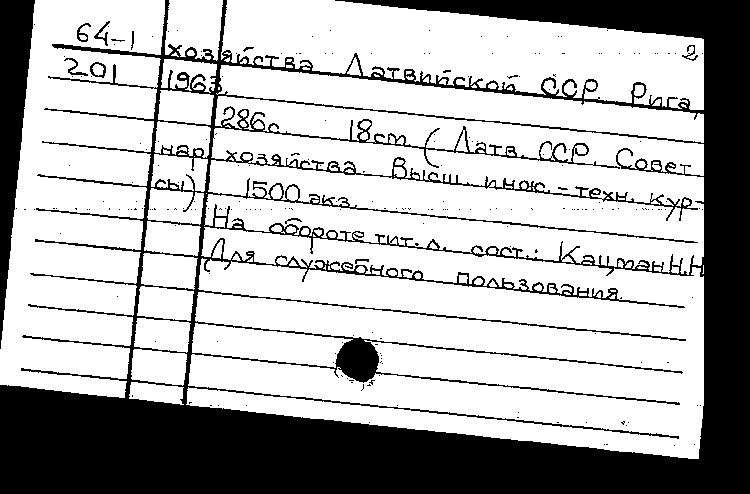 2
64-1 хозяйства Латвийской ССР. Рига,
201 1963.
286с. 18см (Латв. ССР. Совет
нар. хозяйства. Высш. инж.-техн. кур-
сы) 1500 экз.
На обороте тит. л. сост.: Кацман Н.Н
Для служебного пользования.